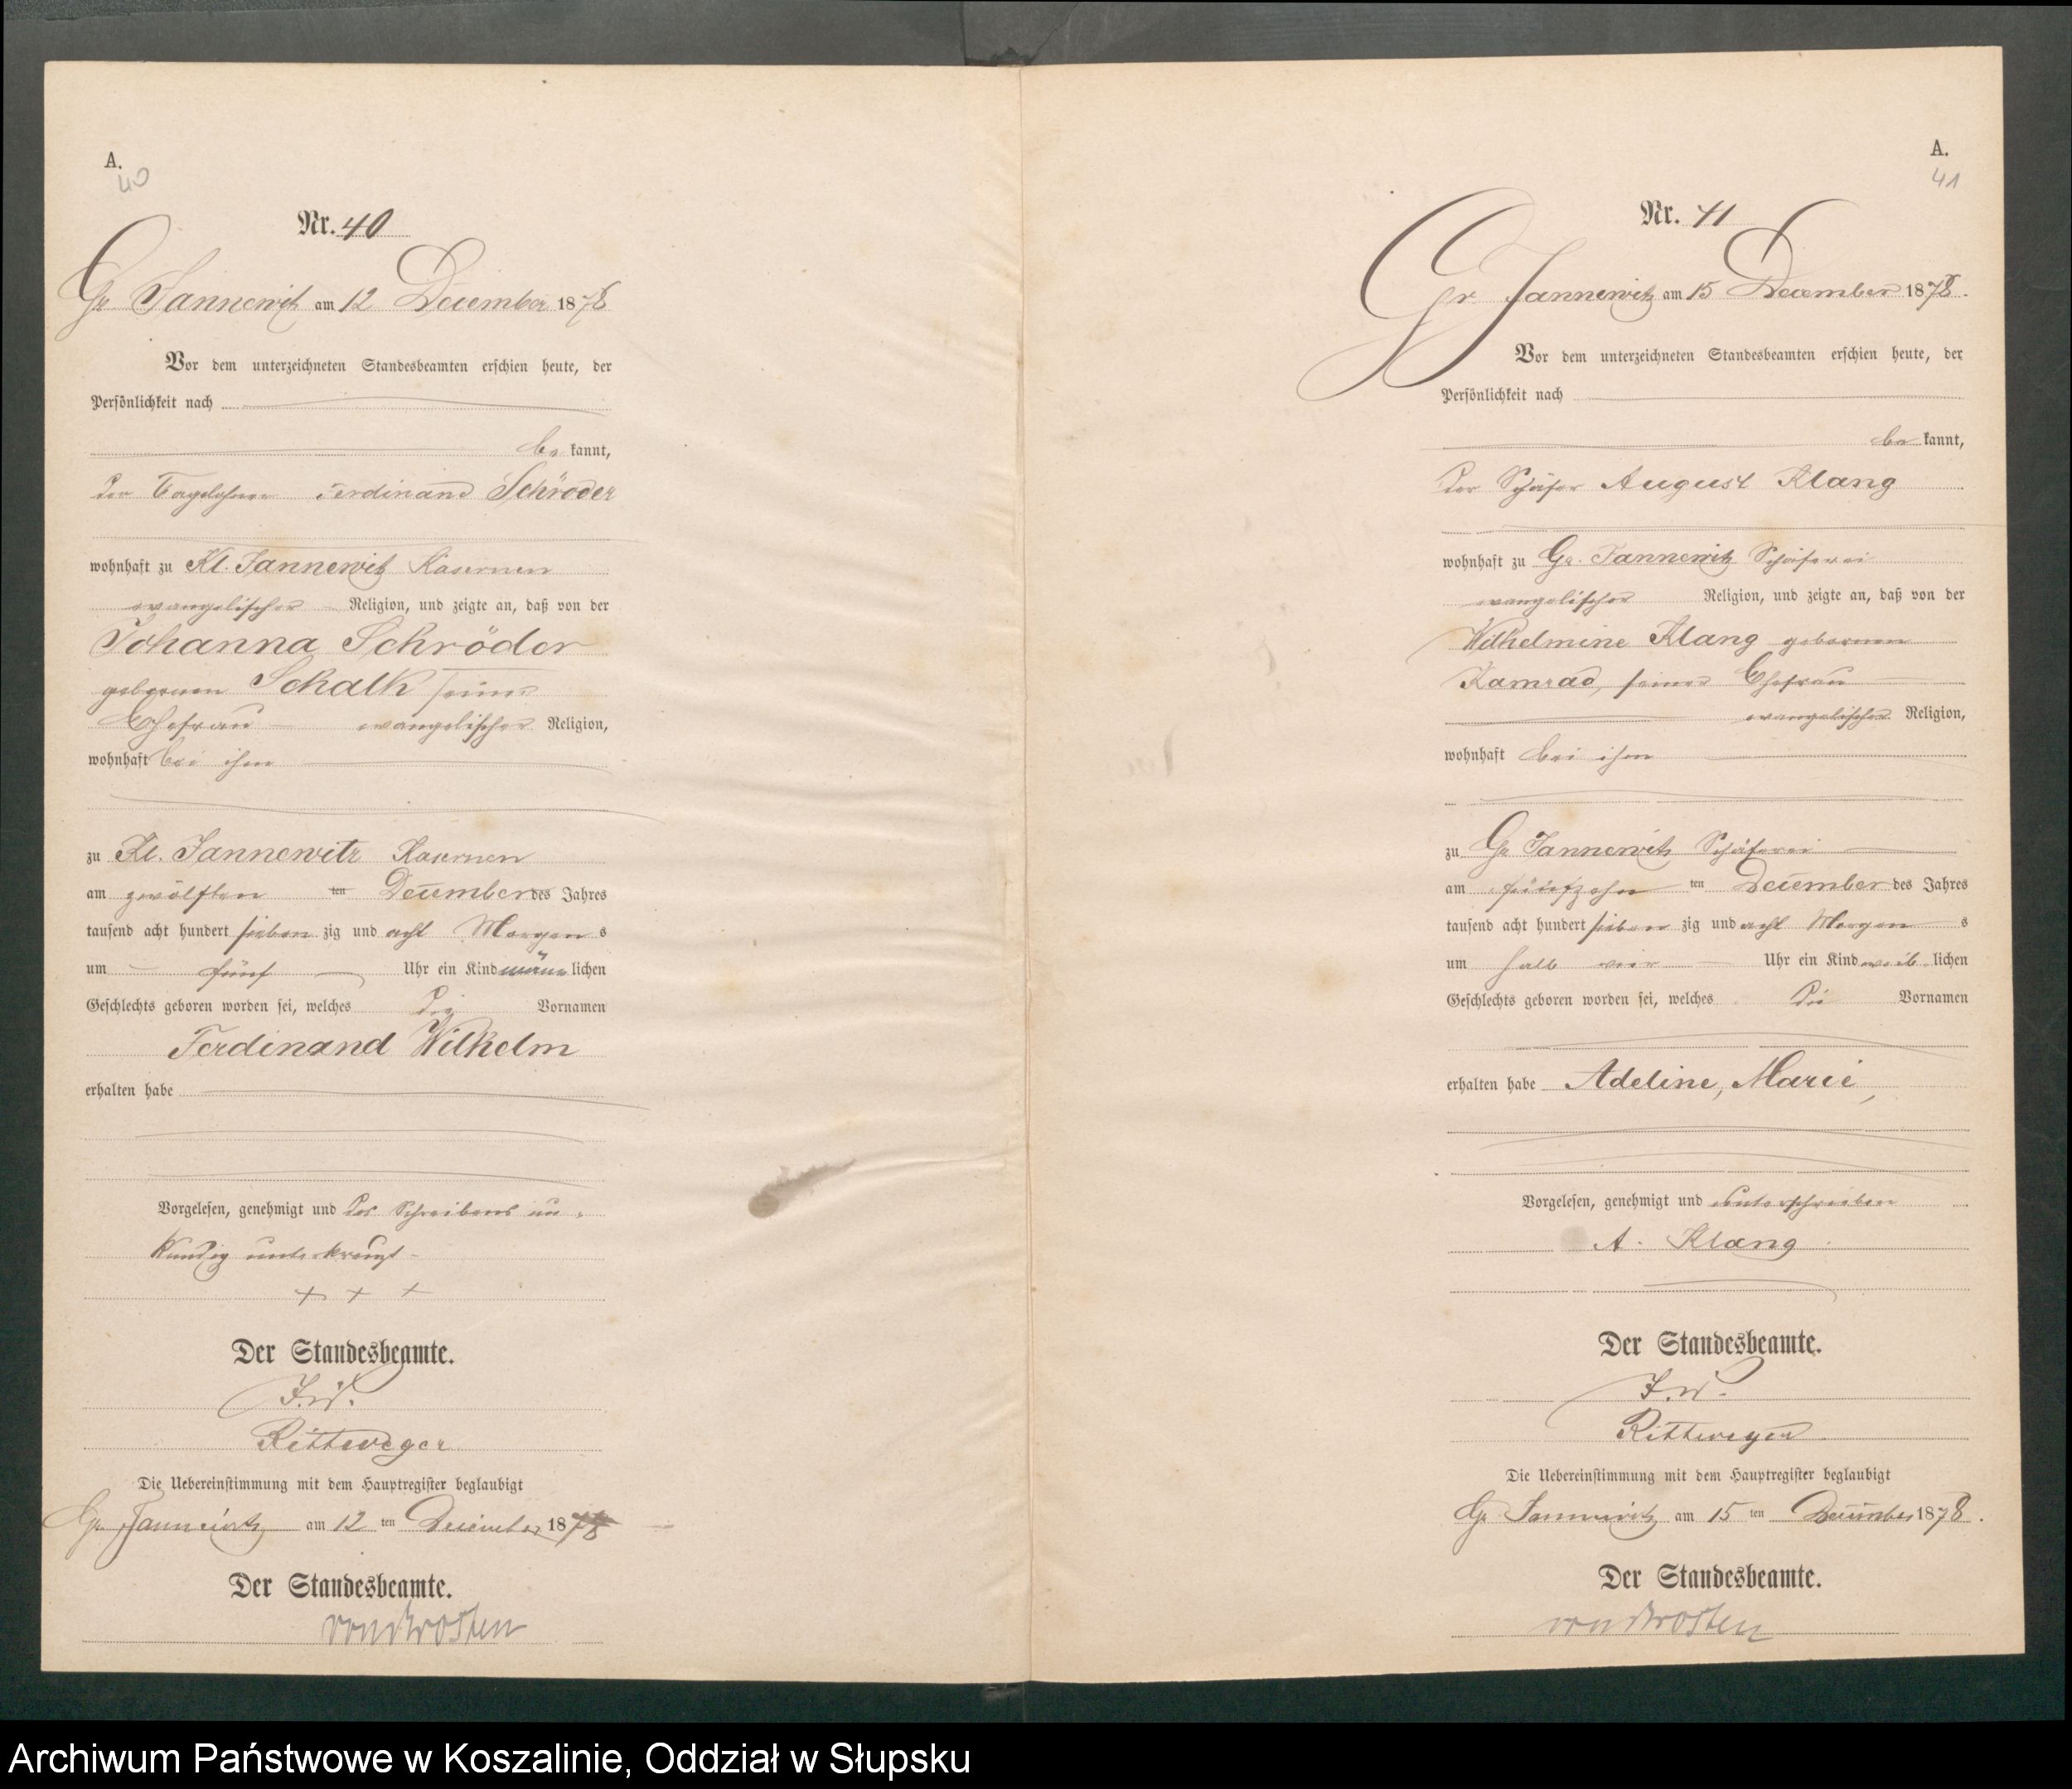 A.
40
Nr. 40
Gr Jannewitz am 12 December 1878
Vor dem unterzeichneten Standesbeamten erschien heute, der
Persönlichkeit nach
be kannt,
der Tagelöhner Ferdinand Schröder
wohnhaft zu Kl. Jannewitz Kasernen
evangelischer Religion, und zeigte an, daß von der
Johanna Schröder
gebornen Schalk seiner
Ehefrau evangelischer Religion,
wohnhaft bei ihm
zu Kl. Jannewitz Kasernen
am zwölften ten December des Jahres
tausend acht hundert sieben zig und acht Morgen s
um fünf Uhr ein Kind männ lichen
Geschlechts geboren worden sei, welches die Vornamen
Ferdinand Wilhelm
erhalten habe
Vorgelesen, genehmigt und des Schreibens un-
kundig unterkreuzt
+ + +
Der Standesbeamte.
I. V.
Rittweger
Die Uebereinstimmung mit dem Hauptregister beglaubigt
Gr. Jannewitz am 12 ten December 1878
Der Standesbeamte.
A.
41
Nr. 41
Gr Jannewitz am 15 December 1878.
Vor dem unterzeichneten Standesbeamten erschien heute, der
Persönlichkeit nach
be kannt,
der Schäfer August Klang
wohnhaft zu Gr. Jannewitz Schäferei
evangelischer Religion, und zeigte an, daß von der
Wilhelmine Klang gebornen
Kamrad, seiner Ehefrau
evangelischer Religion,
wohnhaft bei ihm
zu Gr Jannewitz Schäferei
am fünfzehn ten December des Jahres
tausend acht hundert sieben zig und acht Morgen s
um halb vier Uhr ein Kind weib lichen
Geschlechts geboren worden sei, welches die Vornamen
erhalten habe Adeline, Marie,
Vorgelesen, genehmigt und unterschrieben
A. Klang
Der Standesbeamte.
I. V.
Rittweger
Die Uebereinstimmung mit dem Hauptregister beglaubigt
Gr. Jannewitz am 15 ten December 1878.
Der Standesbeamte.
Archiwum Państwowe w Koszalinie, Oddział w Słupsku